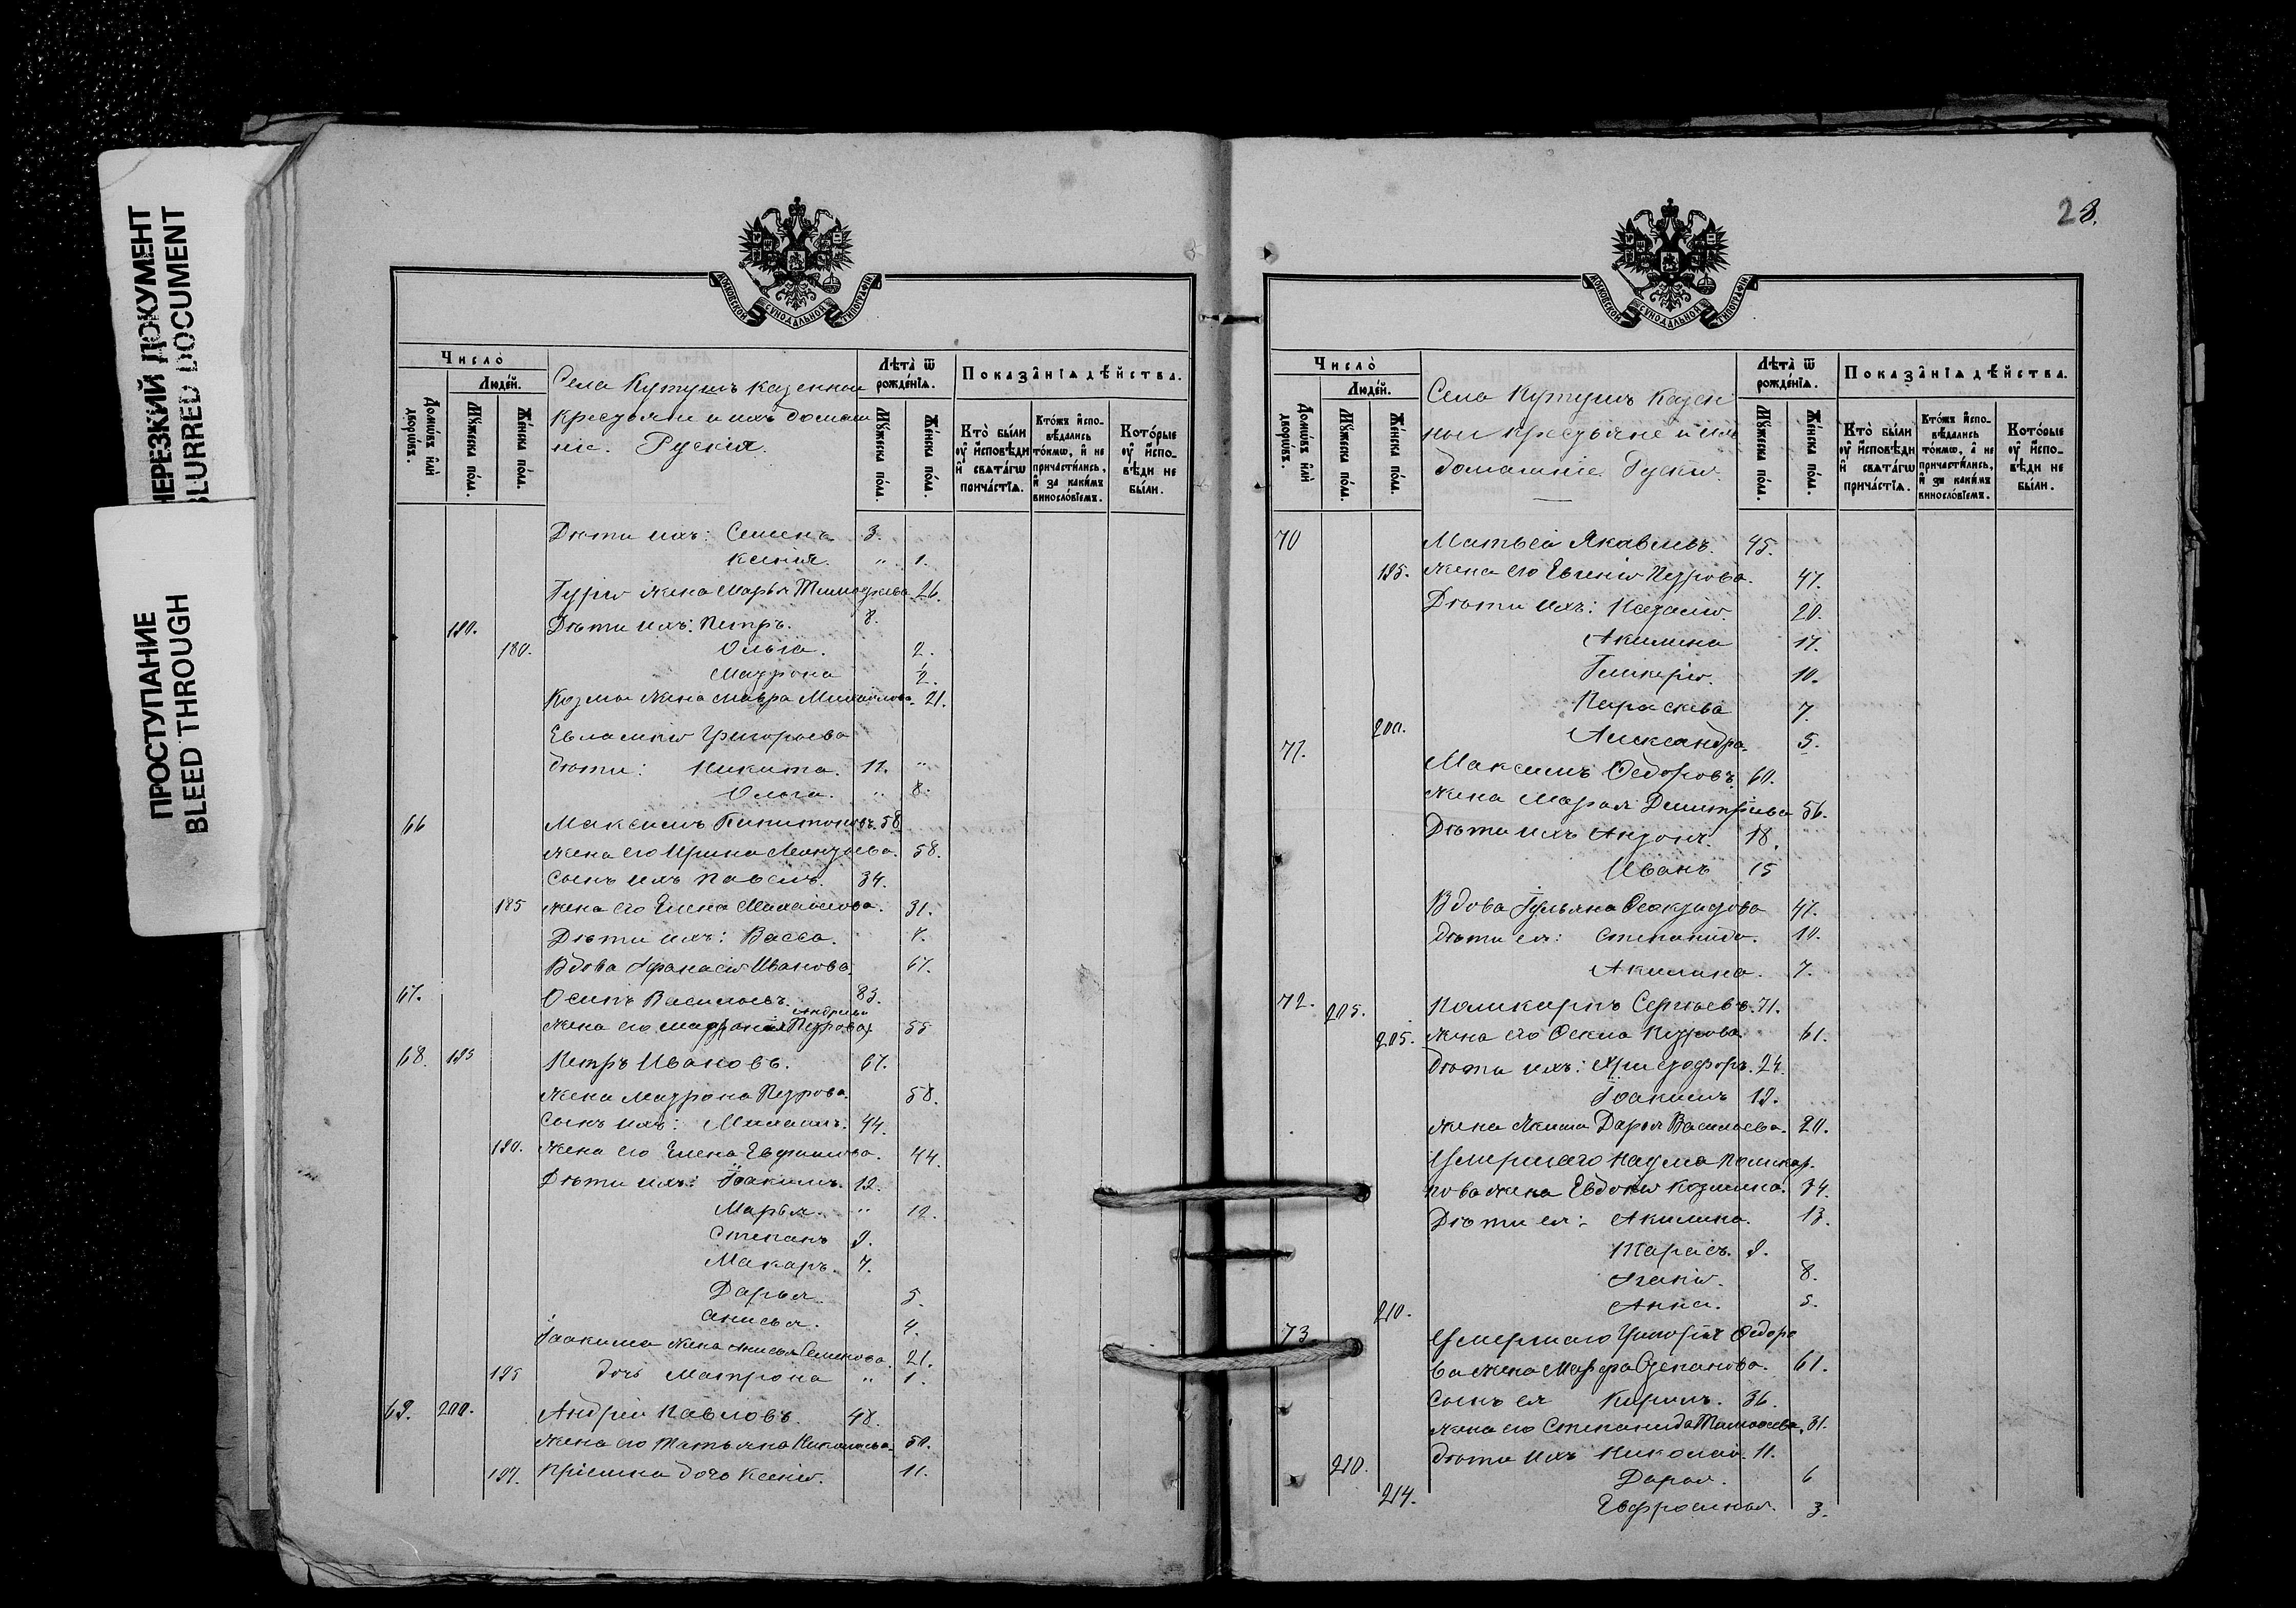 НЕРЕЗКИЙ ДОКУМЕНТ
BLURRED DOCUMENT
ПРОСТУПАНИЕ
BLEED THROUGH
МОСКОВСКОЙ СУНОДАЛЬНОЙ ТИПОГРАФІИ
Число̀
Людей.
Домѡвъ и҆лѝ дворѡвъ.
Мꙋжеска пола.
Женска пола.
Села Кутушъ казенныи
крестьяне и ихъ домаш
ніе. Рускія.
Лѣта̀ ѿ рожденїѧ.
Мꙋжеска пола.
Женска пола.
Показанїѧ дѣйства.
Кто̀ были оу҆ и҆сповѣди и҆ свѧтагѡ причастїѧ.
Ктожъ и҆сповѣдались токмѡ, и҆ не причастились, и҆ за какимъ винословїемъ.
Которые оу҆ и҆сповѣди не были.
Дѣти ихъ: Семенъ 3.
Ксенія. „ 1.
Гурія жена Марья Тимофѣева. 26.
190. Дѣти ихъ: Петръ. 8.
180. Ольга. 2.
Матрона ½.
Козмы жена Мавра Михайлова. 21.
Евлампія Григорьева
дѣти: Никита. 11. „
Ольга. „ 8.
66 Максимъ Капитоновъ. 58.
жена его Ирина 58.
Сынъ ихъ Павелъ. 34.
185 жена его Елена Михайлова. 31.
Дѣти ихъ: Васса. 7.
Вдова Афанасія Иванова. 67.
67. Осипъ Васильевъ. 83.
Андреева
жена его Матрона (Петрова) 55
68. 195 Петръ Ивановъ. 67.
жена Матрона Петрова 58.
Сынъ ихъ: Михаилъ. 44.
190. жена его Елена Евфимова. 44.
Дѣти ихъ: Іоакимъ. 19.
Марья. „ 12.
Степанъ 9.
Макаръ. 7.
Дарья 5.
Анисья. 4.
Іоакима жена Анисья Семенова. 21.
195 дочь Матрона „ 1.
69. 200. Андрей Павловъ. 48.
жена его Татьяна Николаева. 50.
197. Пріемна дочь Ксенія. 11.
28.
МОСКОВСКОЙ СУНОДАЛЬНОЙ ТИПОГРАФІИ
Число̀
Людей.
Домѡвъ и҆лѝ дворѡвъ.
Мꙋжеска пола.
Женска пола.
Села Кутушъ Казен
ныи крестьяне и ихъ
домашніе. Рускія.
Лѣта̀ ѿ рожденїѧ.
Мꙋжеска пола.
Женска пола.
Показанїѧ дѣйства.
Кто̀ были оу҆ и҆сповѣди и҆ свѧтагѡ причастїѧ.
Ктожъ и҆сповѣдались токмѡ, и҆ не причастились, и҆ за какимъ винословїемъ.
Которые оу҆ и҆сповѣди не были.
70 Матвей Яковлевъ. 45.
195. жена его Евгенія Петрова. 47.
Дѣти ихъ: Наталія. 20.
Акилина 17.
Гликерія. 10.
Параскева 7.
200. Александра. 5.
71. Максимъ Ѳедоровъ. 60.
жена Марья Дмитріева 56.
Дѣти ихъ Антонъ. 18.
Иванъ 15
Вдова Гульяна 47.
дѣти ея: Степанида. 10.
Акилина. 7.
72. 205. Поликарпъ Сергѣевъ. 71.
205. жена его Ѳекла Петрова. 61.
дѣти ихъ: Христофоръ. 24.
Іоакимъ 19.
жена Якима Дарья Васильева. 20.
Умершаго Наума Поликар-
пова жена Евдокія Козмина. 34.
Дѣти ея: Акилина. 13.
Тарасъ. 9.
8.
210. Анна. 5.
73 Умершаго Григорія Ѳедоро
ва жена Марфа Степанова. 61.
Сынъ ея Кирилъ. 36.
жена его Степанида Тимофѣева. 31.
210. дѣти ихъ Николай. 11.
Дарья. 6
214. Евфросинья. 3.